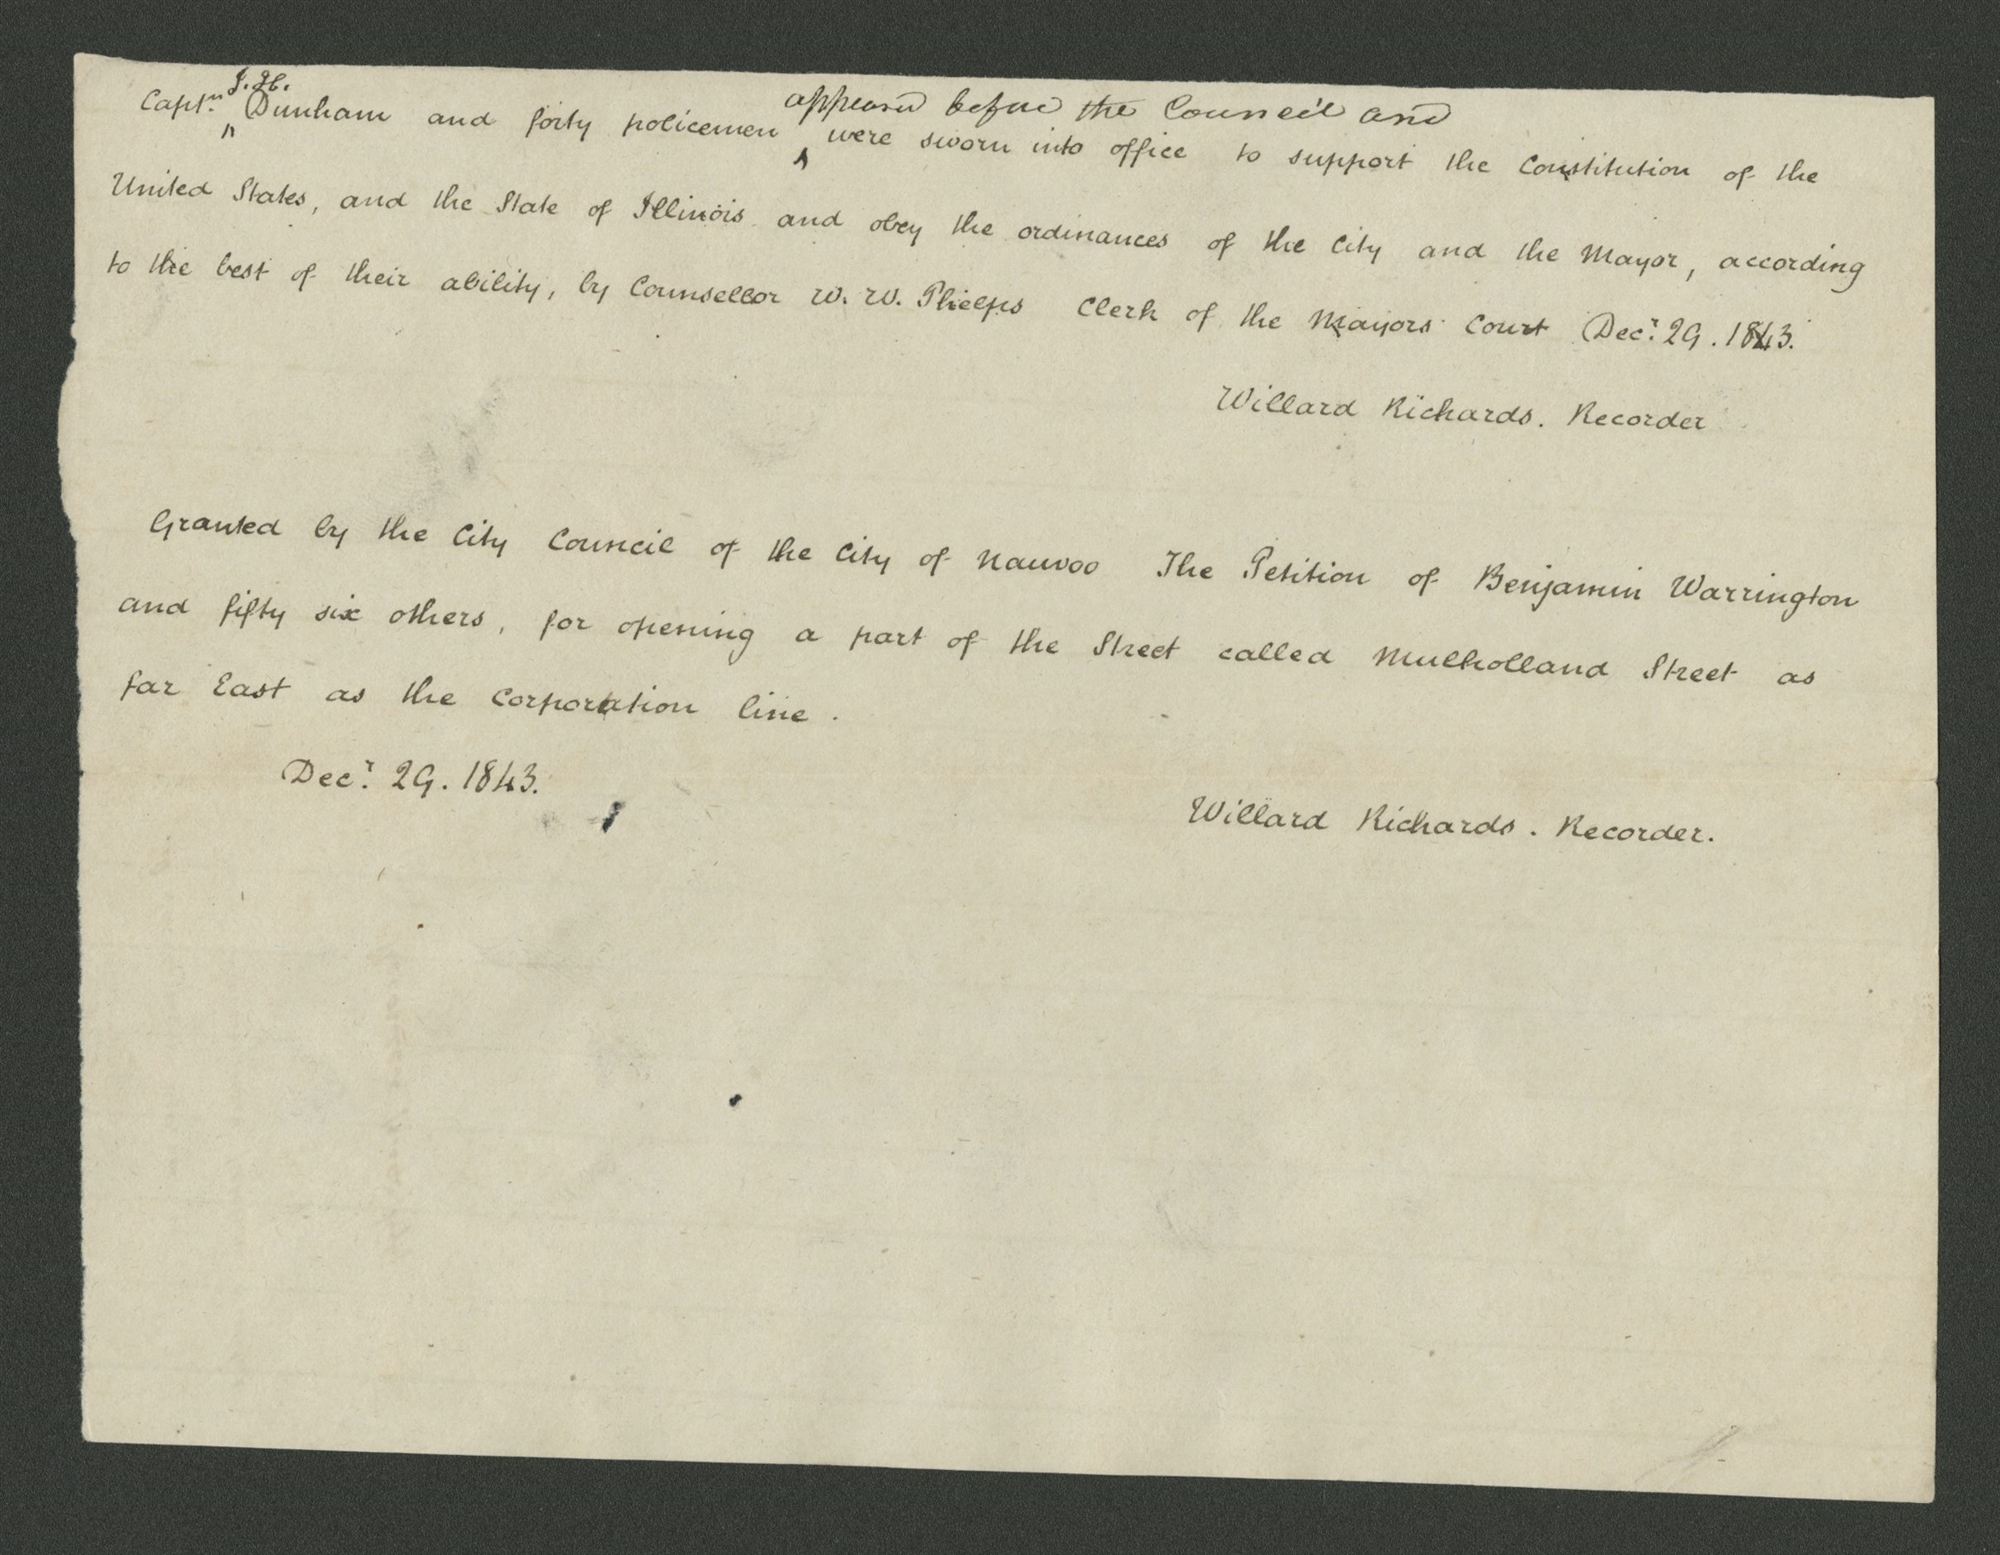 J. H. appeared before the Council and
Captn. Dunham and forty policemen were sworn into office to support the Constitution of the
United States, and the State of Illinois and obey the ordinances of the City and the Mayor, according
to the best of their ability, by Counsellor W. W. Phelps Clerk of the Mayors Court Decr. 29. 1843.
Willard Richards. Recorder
Granted by the City Council of the City of Nauvoo The Petition of Benjamin Warrington
and fifty six others, for opening a part of the Street called Mulholland Street as
far East as the corporation line.
Decr. 29. 1843.
Willard Richards. Recorder.